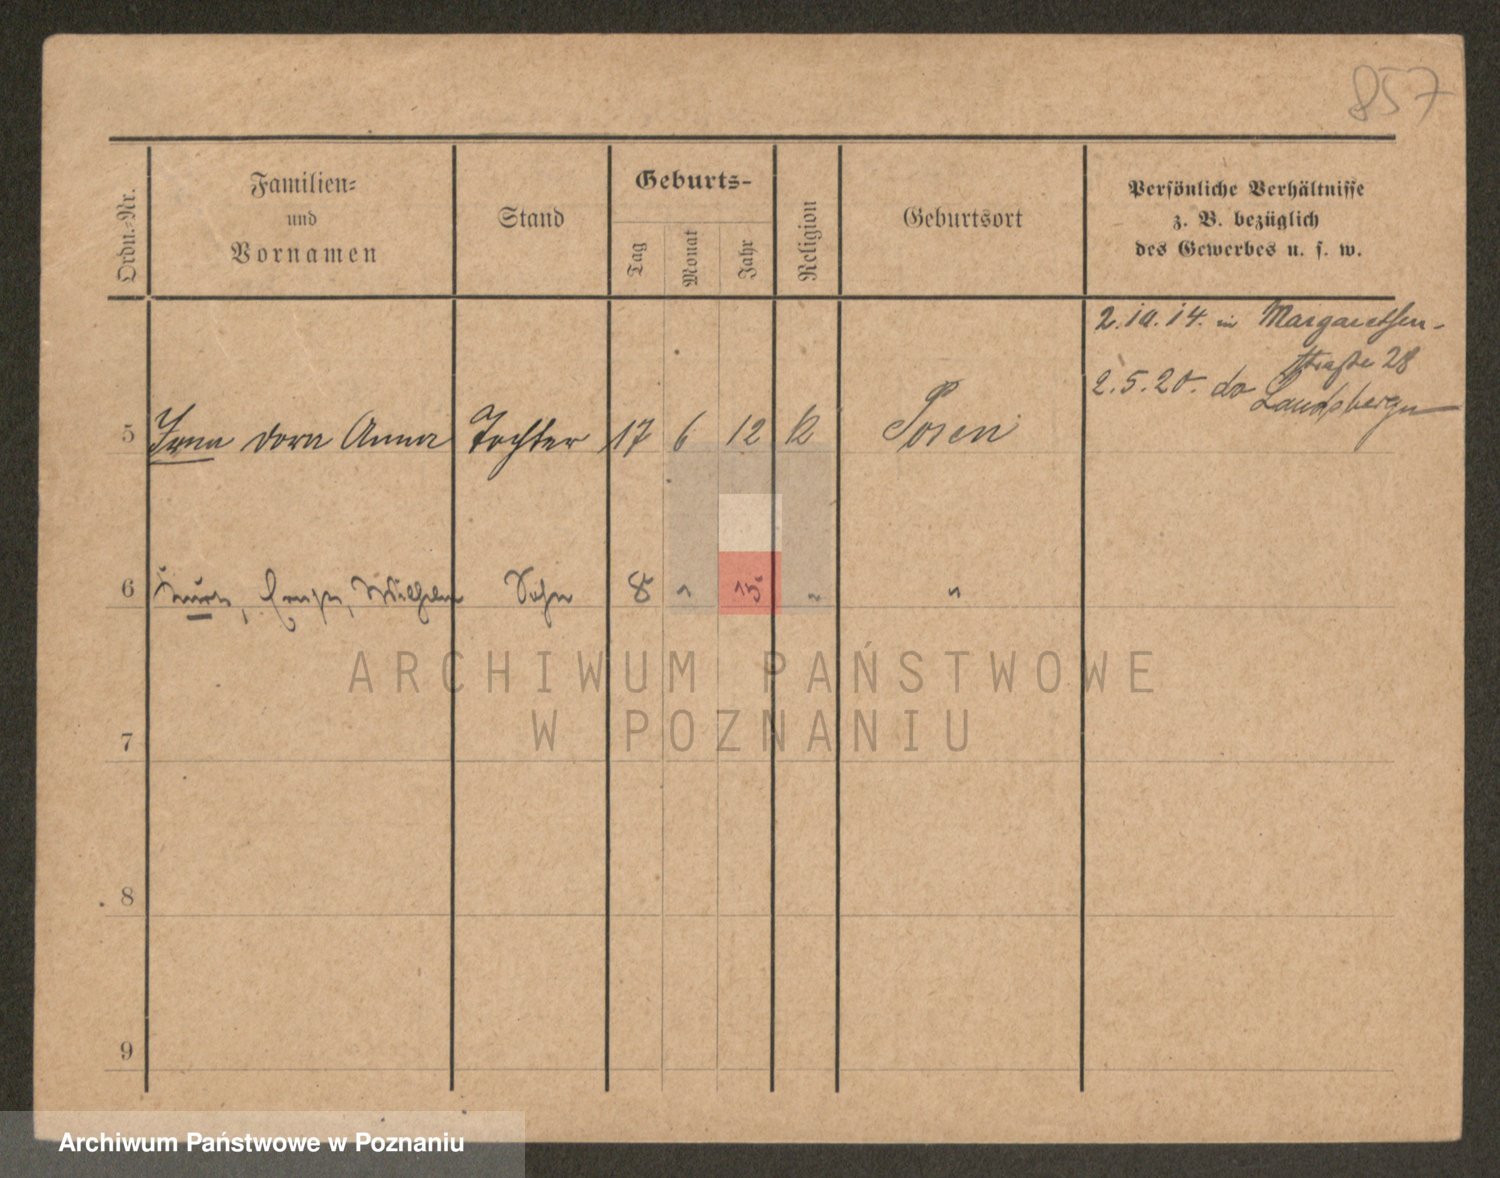 857
Ordn.-Nr.
Familien-
und
Vornamen
Stand
Geburts-
Tag
Monat
Jahr
Religion
Geburtsort
Persönliche Verhältnisse
z. B. bezüglich
des Gewerbes u. s. w.
2.10.14. in Margarethen-
straße 28
2.5.20. do Landsberg
5 Irma Dora Anna Tochter 17 6 12 K Posen
6 Wilhelm Sohn 8 " 15 " "
7
ARCHIWUM PAŃSTWOWE
W POZNANIU
8
9
Archiwum Państwowe w Poznaniu